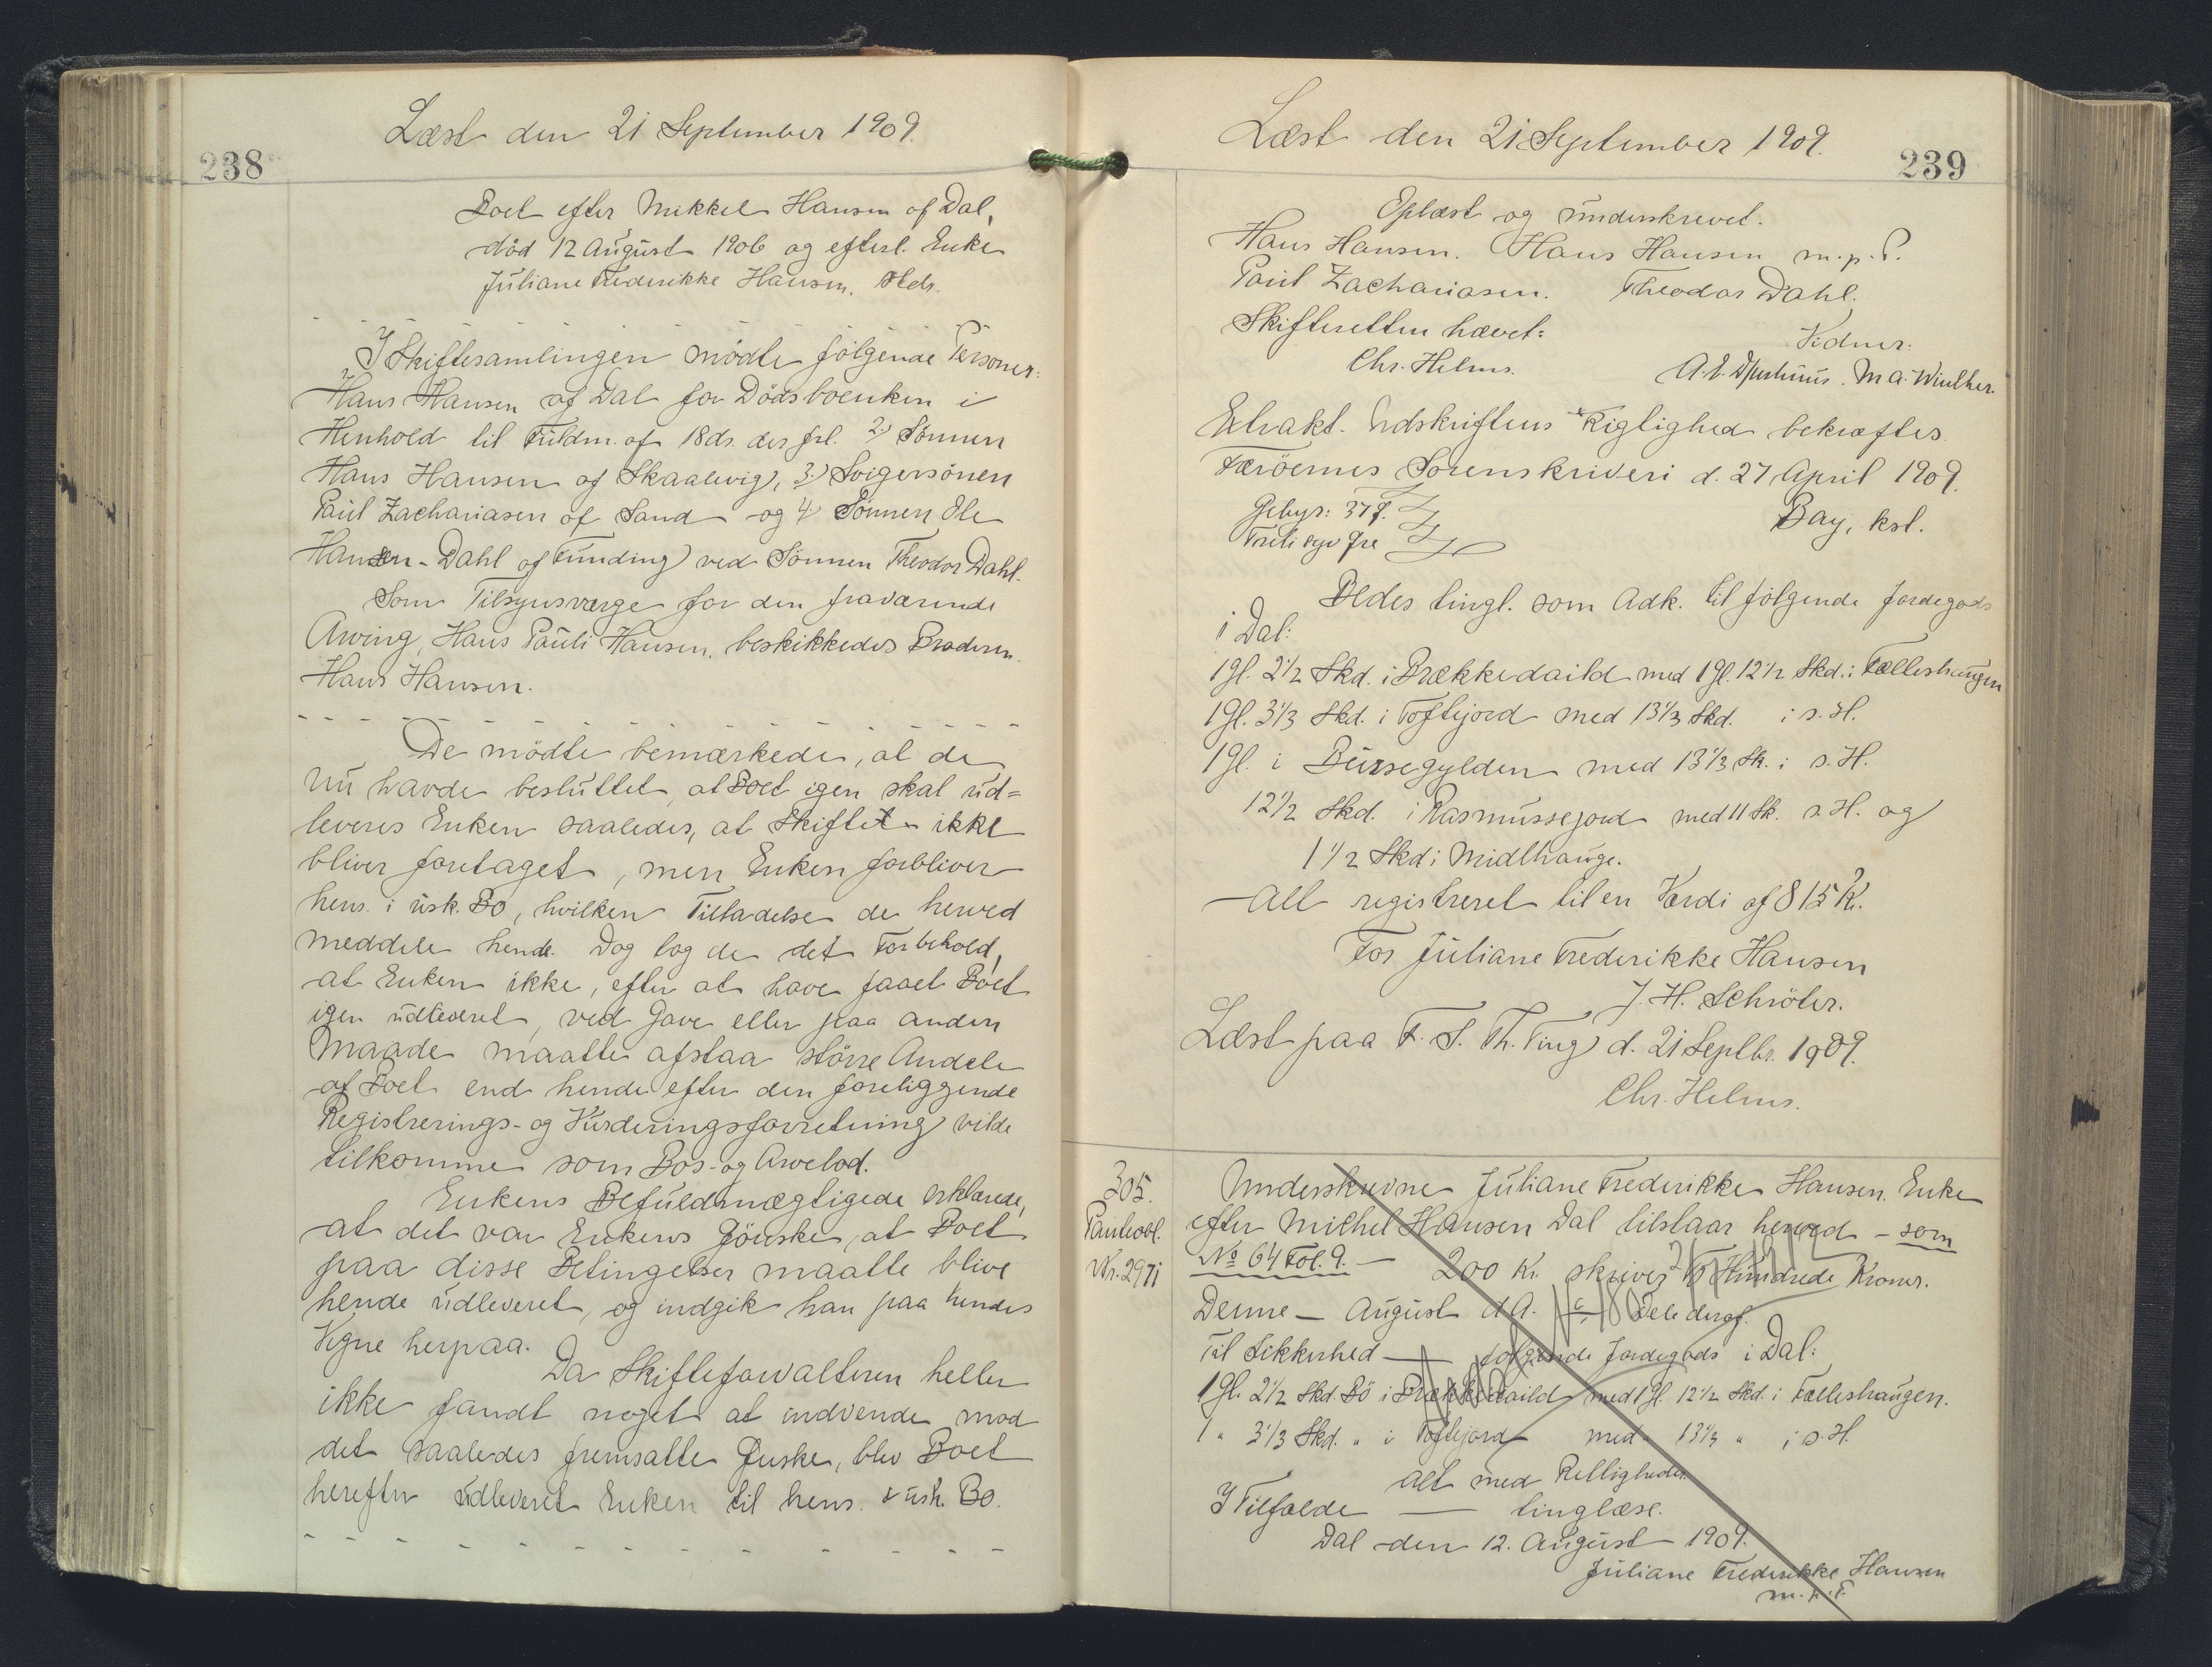 Læst den 21 September 1909.
238
Boet efter Mikkel Hansen af Dal,
død 12 August 1906 og efterl. Enke
Juliane Frederikke Hansen, stds.
- - - - - - - - - - - -
"I Skiftesamlingen mødte følgende Personer:
Hans Hansen af Dal for Dødsboenken i
Henhold til Fuldm. af 18 ds. der frl. 2) Sønnen
Hans Hansen af Skaalevig, 3) Svigersønen
Paul Zachariasen af Sand og 4) Sønnen Ole
Hansen-Dahl af Funding ved Sønnen Theodor Dahl.
Som Tilsynsværge for den fraværende
Arving, Hans Pauli Hansen, beskikkedes Broderen
Hans Hansen.
- - - - - - - - - - - - - -
De mødte bemærkede, at de
nu havde besluttet, at Boet igen skal ud=
leveres Enken saaledes, at Skiftet ikke
bliver foretaget, men Enken forbliver
hens. i usk. Bo, hvilken Tilladelse de herved
meddele hende. Dog tog de det Forbehold,
at Enken ikke, efter at have faaet Boet
igen udleveret, ved Gave eller paa anden
Maade maatte afstaa større Andele
af Boet end hende efter den foreliggende
Registrerings- og Vurderingsforretning vilde
tilkomme som Bos- og Arvelod.
Enkens Befuldmægtigede erklærede,
at det var Enkens Ønske, at Boet
paa disse Betingelser maatte blive
hende udleveret, og indgik han paa hendes
Vegne herpaa.
Da Skifteforvalteren heller
ikke fandt noget at indvende mod
det saaledes fremsatte Ønske, blev Boet
herefter udleveret Enken til hens. i usk. Bo.
- - - - - - - - - - - - -
Læst den 21 September 1909.
239
Oplæst og underskrevet.
Hans Hansen. Hans Hansen m. p. P.
Paul Zachariasen. Theodor Dahl.
Skifteretten hævet:
Chr. Helms.
Vidner:
M A. Winther.
Extrakt-Udskriftens Rigtighed bekræftes
Færöernes Sorenskriveri d. 27 April 1909.
Gebyr: 37 Ø.
Treti syv Øre
Bay, kst.
Bedes tingl. som Adk. til følgende Jordegods
i Dal:
1 Gl. 2 1/2 Skd. i Brækkedaild med 1 Gl. 12 1/2 Skd. i Fælleshaugen
1 Gl. 3 1/3 Skd. i Toftejord med 13 1/3 Skd. i s. H.
1 Gl. i Bursegylden med 13 1/3 Sk. i s. H.
12 1/2 Skd. i Rasmussejord med 11 Sk. s. H. og
1 1/2 Skd i Midlhauge.
Alt registreret til en Værdi af 815 Kr.
For Juliane Frederikke Hansen
J. H. Schröter.
Læst paa F. S. Th. Ting d. 21 Septbr. 1909.
Chr. Helms.
305.
Panteobl.
Nr. 297i
Underskrevne Juliane Frederikke Hansen, Enke
efter Michel Hansen Dal tilstaar herved - som
No 64 Fol. 9. - 200 Kr. skriver To Hundrede Kroner.
Denne - August d. A. Dele deraf.
Til Sikkerhed - følgende Jordegods i Dal:
1 Gl. 2 1/2 Skd. Bö i Brækkedaild med 1 Gl. 12 1/2 Skd. i Fælleshaugen.
1 " 3 1/3 Skd. " i Toftejord med 13 1/3 " i s. H.
Alt med Rettigheder.
I Tilfælde - tinglæse.
Dal den 12. August 1909.
Juliane Frederikke Hansen
m. p. P.